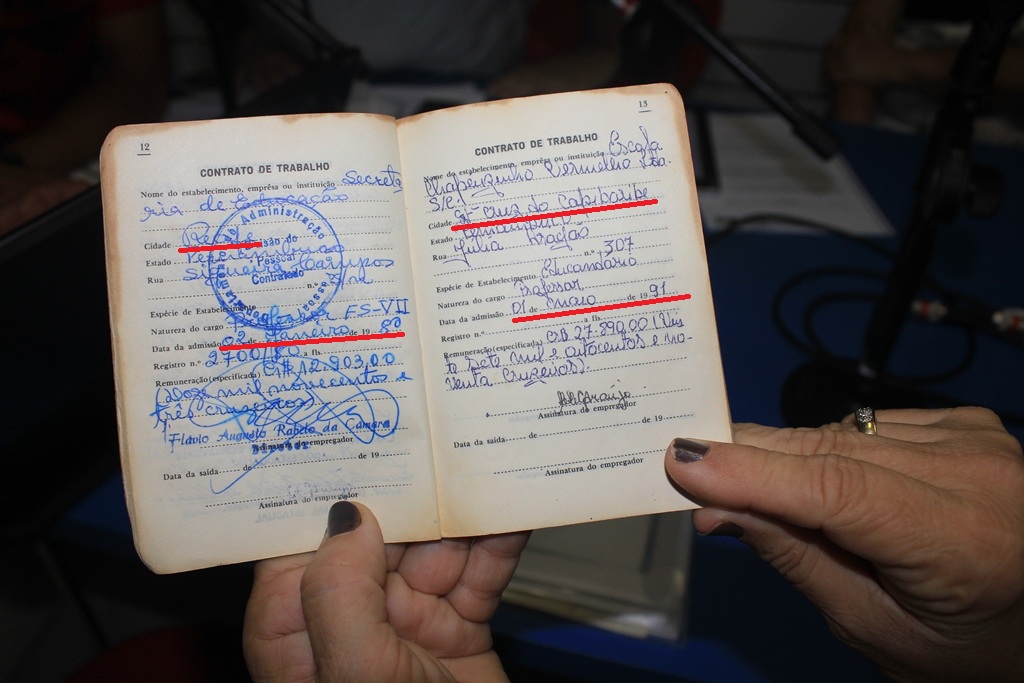 12
CONTRATO DE TRABALHO
Nome do estabelecimento, emprêsa ou instituição Secreta
ria de Educação
Cidade Recife
Estado Pernambuco
Rua Siqueira Campos
n.º
Espécie de Estabelecimento
Natureza do cargo Professor ES-VII
Data da admissão 02 de Janeiro de 19 80
Registro n.º 2700/80 a fls.
Remuneração (especificada) Cr$ 12.903,00
(doze mil novecentos e
três cruzeiros)
Flávio Augusto Rabelo da Câmara
Assinatura do empregador
Data da saída de de 19
Assinatura do empregador
Administração
Pessoal
Contratado
13
CONTRATO DE TRABALHO
Nome do estabelecimento, emprêsa ou instituição Escola
Chapeuzinho Vermelho Ltda.
S/C.
Cidade Stª Cruz do Capibaribe
Estado Pernambuco
Rua Júlia Aragão
n.º 307
Espécie de Estabelecimento Educandário
Natureza do cargo Professor
Data da admissão 01 de maio de 19 91
Registro n.º a fls.
Remuneração (especificada) CR$ 27.890,00 (Vin
te sete mil e oitocentos e no-
venta Cruzeiros).
Assinatura do empregador
Data da saída de de 19
Assinatura do empregador